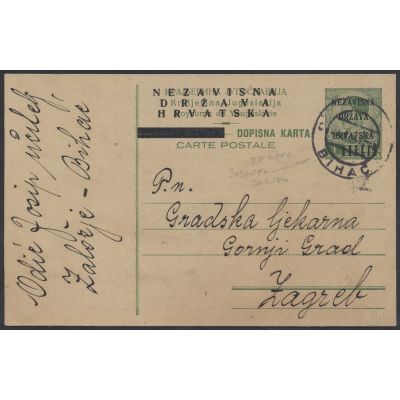 NEZAVISNA
DRŽAVA
HRVATSKA
Kraljevina Jugoslavija
Royaume de Yougoslavie
DOPISNA KARTA
CARTE POSTALE
NEZAVISNA
DRŽAVA
HRVATSKA
BIHAĆ
P.n.
Gradska ljekarna
Gornji Grad
Zagreb
Josip
Založje - Bihać